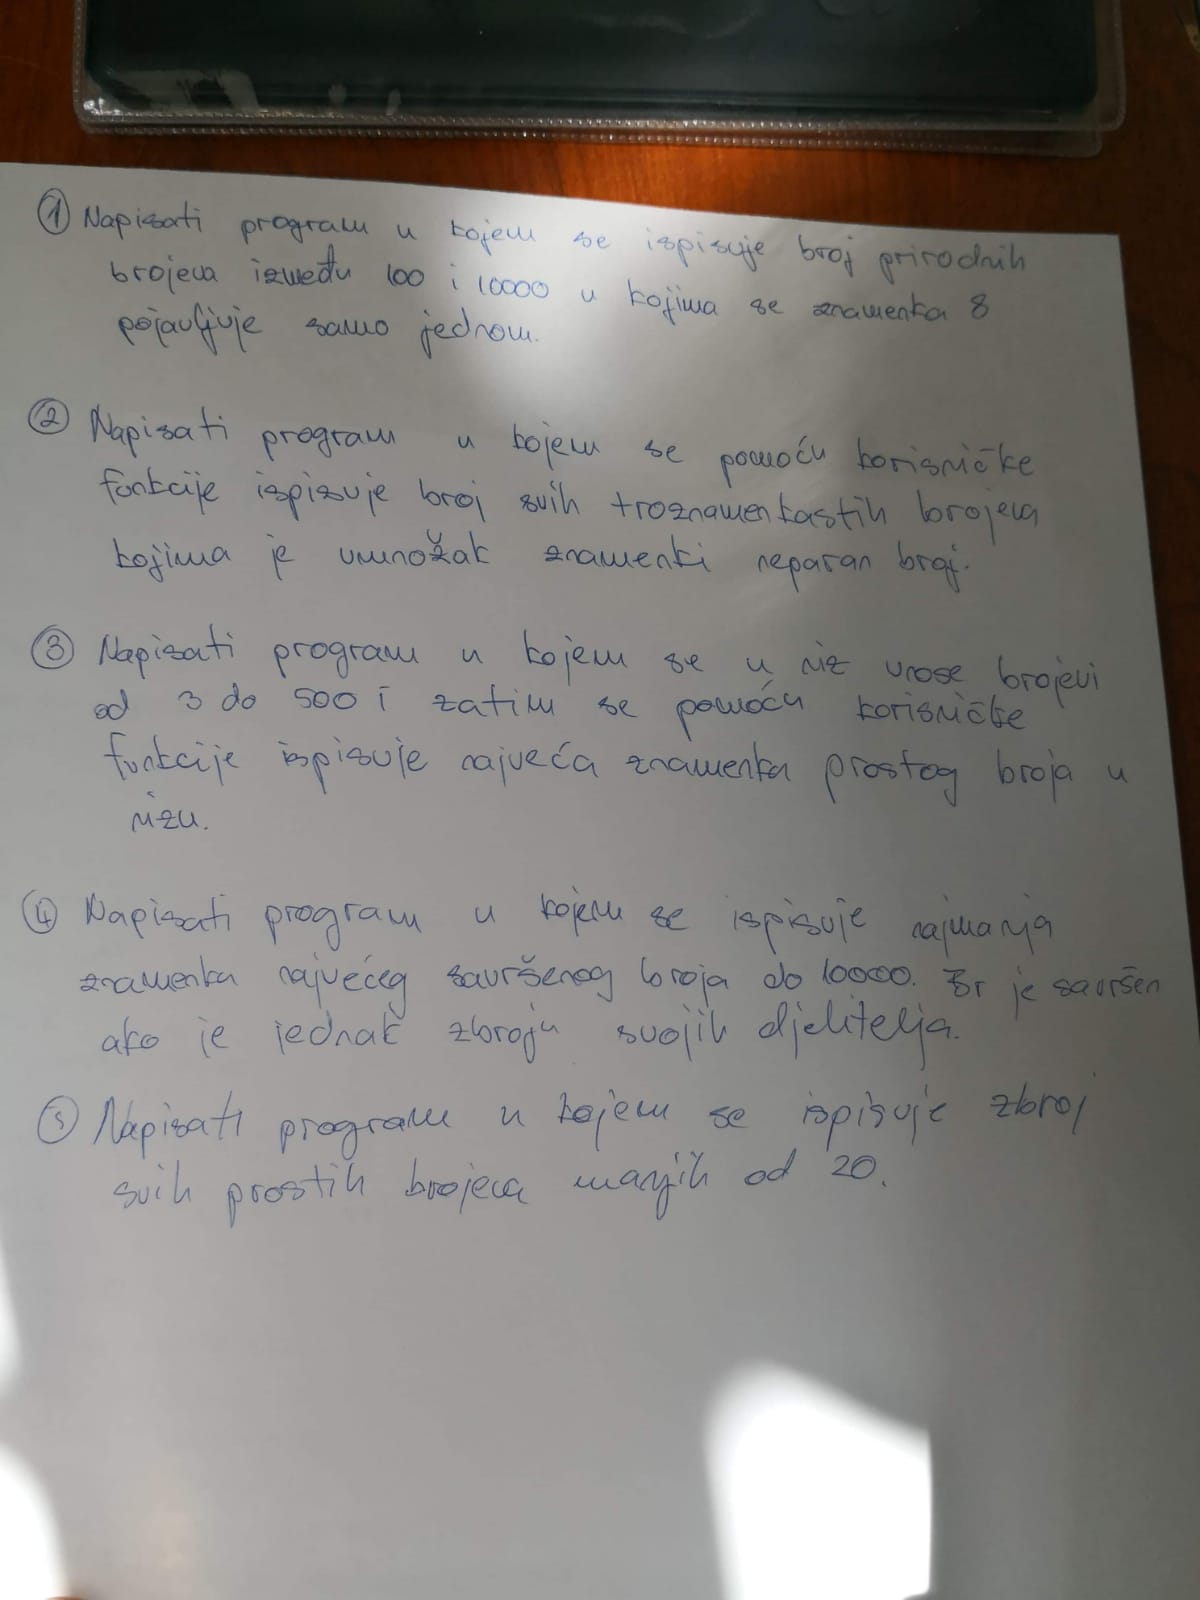 ① Napisati program u kojem se ispisuje broj prirodnih
brojeva između 100 i 10000 u kojima se znamenka 8
pojavljuje samo jednom.
② Napisati program u kojem se pomoću korisničke
funkcije ispisuje broj svih troznamenkastih brojeva
kojima je umnožak znamenki neparan broj.
③ Napisati program u kojem se u niz unose brojevi
od 3 do 500 i zatim se pomoću korisničke
funkcije ispisuje najveća znamenka prostog broja u
nizu.
④ Napisati program u kojem se ispisuje najmanja
znamenka najvećeg savršenog broja do 10000. Br je savršen
ako je jednak zbroju svojih djelitelja.
⑤ Napisati program u kojem se ispisuje zbroj
svih prostih brojeva manjih od 20.